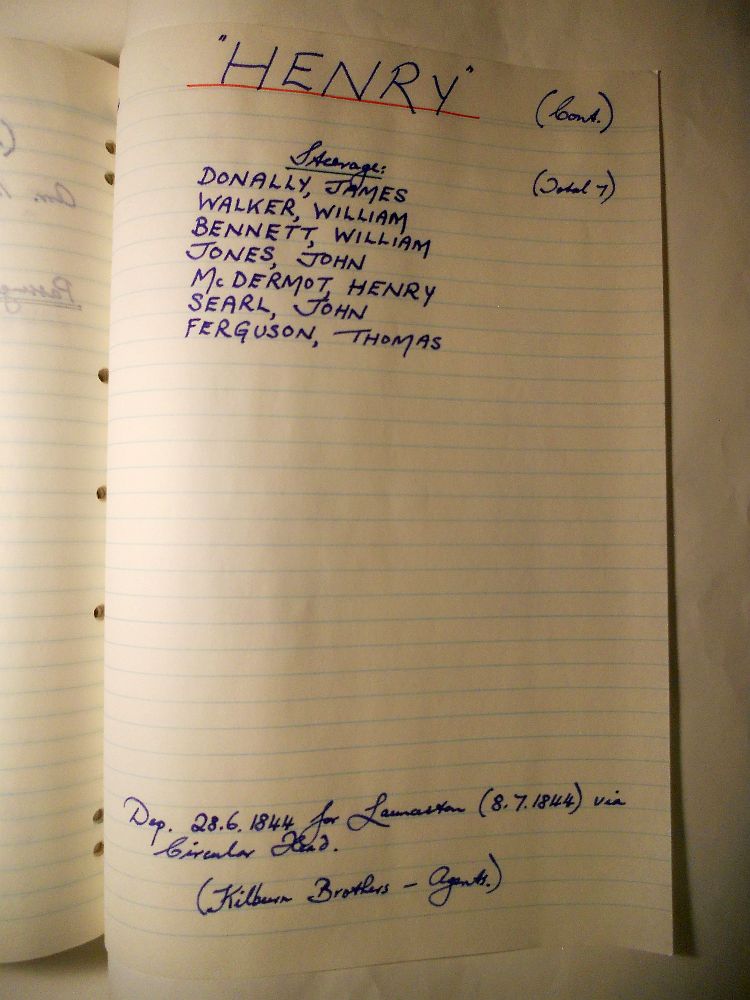 "HENRY"
(Cont.)
Steerage:
(Total 7)
DONALLY, JAMES
WALKER, WILLIAM
BENNETT, WILLIAM
JONES, JOHN
McDERMOT, HENRY
SEARL, JOHN
FERGUSON, THOMAS
Dep. 28.6.1844 for Launceston (8.7.1844) via
Circular Head.
(Kilburn Brothers - Agents.)